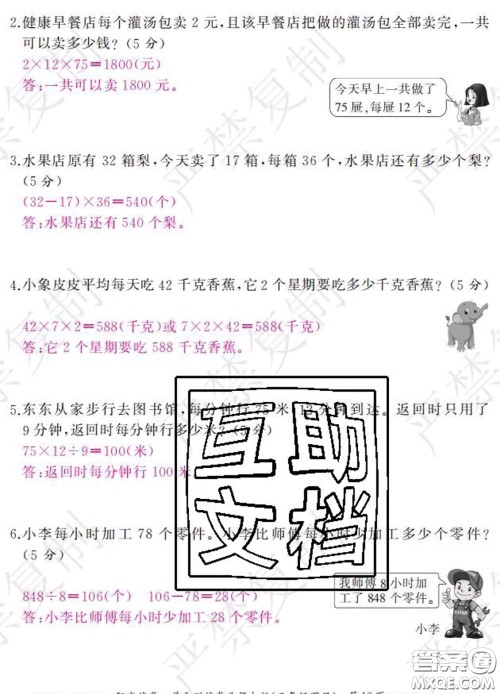 2.健康早餐店每个灌汤包卖 2 元，且该早餐店把做的灌汤包全部卖完，一共
可以卖多少钱？(5 分)
2×12×75＝1800(元)
答：一共可以卖 1800 元。
今天早上一共做了
75 屉，每屉 12 个。
3.水果店原有 32 箱梨，今天卖了 17 箱，每箱 36 个，水果店还有多少个梨？
(5 分)
(32－17)×36＝540(个)
答：水果店还有 540 个梨。
4.小象皮皮平均每天吃 42 千克香蕉，它 2 个星期要吃多少千克香蕉？(5 分)
42×7×2＝588(千克)或 7×2×42＝588(千克)
答：它 2 个星期要吃 588 千克香蕉。
5.东东从家步行去图书馆，每分钟行 75 米，12 分钟到达。返回时只用了
9 分钟，返回时每分钟行多少米？(5 分)
75×12÷9＝100(米)
答：返回时每分钟行 100 米。
6.小李每小时加工 78 个零件。小李比师傅每小时少加工多少个零件？
(5 分)
848÷8＝106(个) 106－78＝28(个)
答：小李比师傅每小时少加工 28 个零件。
我师傅 8 小时加
工了 848 个零件。
小李
互助
文档
严禁复制
严禁复制
严禁复制
严禁复制